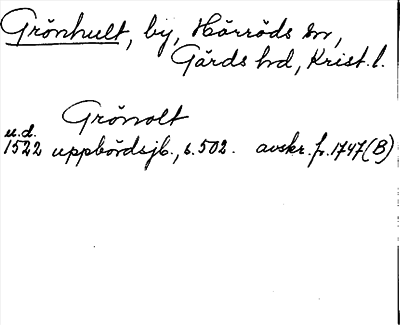 Grönhult, by, Hörröds sn,
Gärds hd, Krist. l.
Grönolt
u.d.
1522 uppbördsjb., s. 502. avskr. fr. 1747 (B)